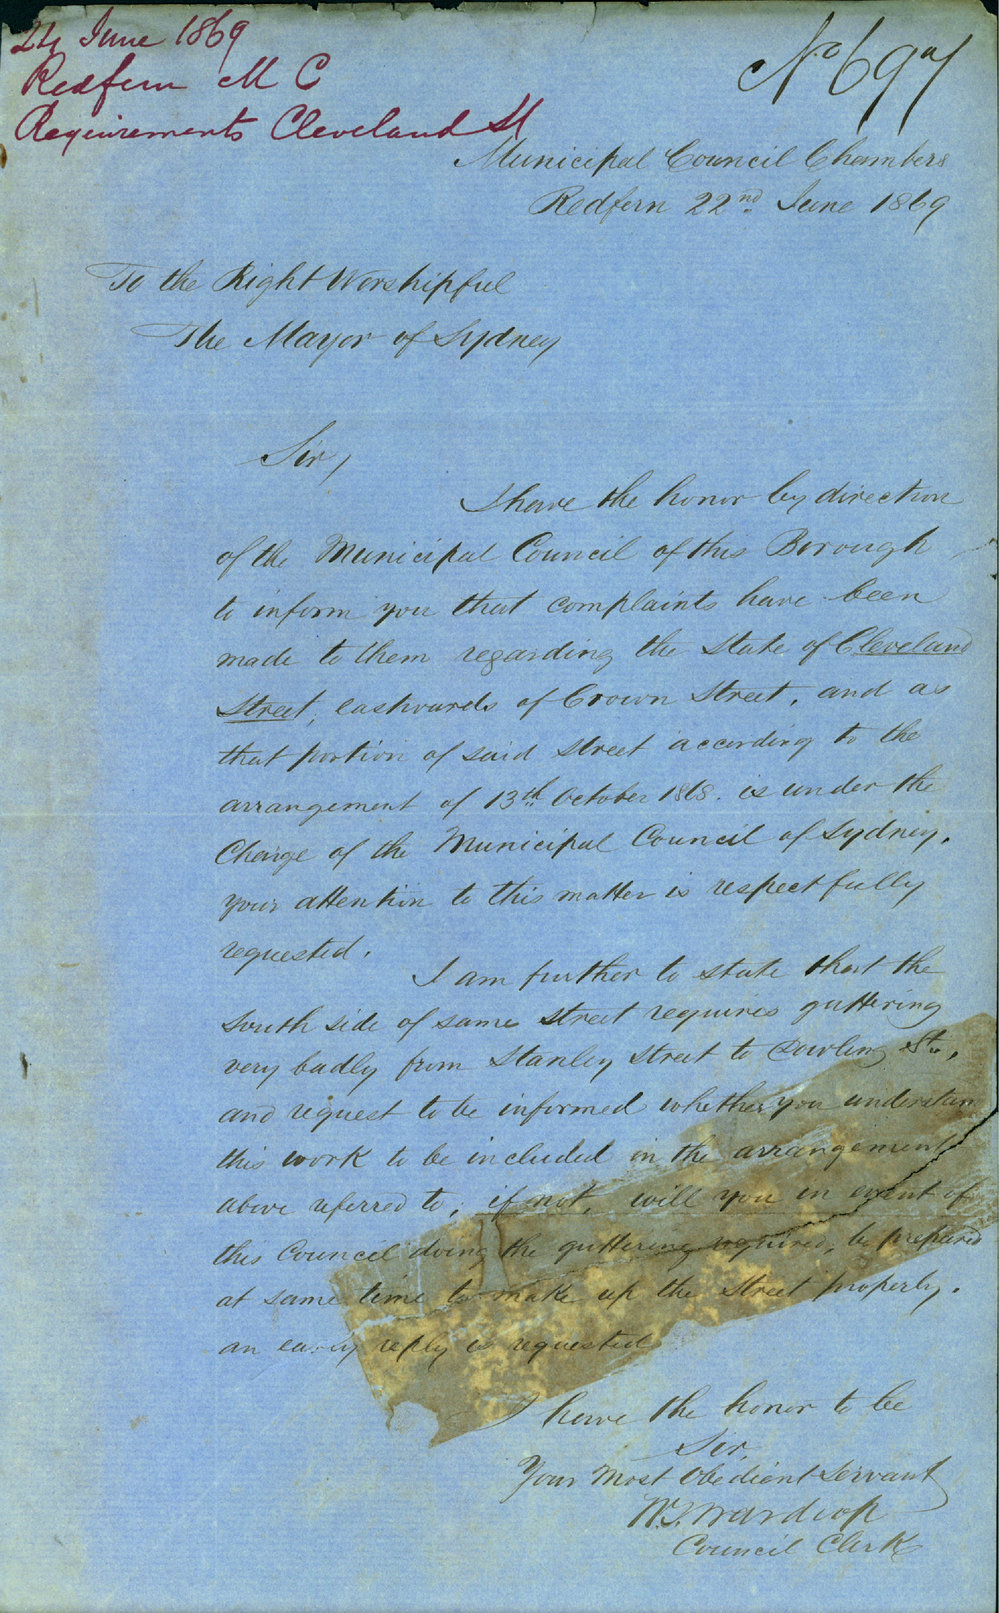 24 June 1869
Redfern M C
Requirements Cleveland St
No 697
Municipal Council Chambers
Redfern 22nd June 1869
To the Right Worshipful
The Mayor of Sydney
Sir,
I have the honor by direction
of the Municipal Council of this Borough
to inform you that complaints have been
made to them regarding the State of Cleveland
Street, eastwards of Crown Street, and as
that portion of said street according to the
arrangement of 13th October 1868. is under the
Charge of the Municipal Council of Sydney.
your attention to this matter is respectfully
requested.
I am further to state that the
South side of same street requires guttering
very badly from Stanley Street to Dowling St.,
and request to be informed whether you understan
this work to be included in the arrangement
above referred to; if not, will you in event of
this Council doing the guttering required, be prepared
at same time to make up the Street properly.
an early reply is requested
I have the honor to be
Sir,
Your Most Obedient Servant
W.J. Wardrop
Council Clerk